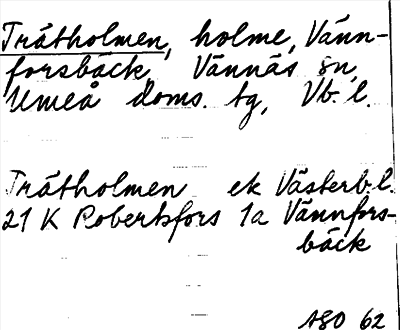 Tråtholmen, holme, Vänn-
forsbäck, Vännäs sn,
Umeå doms. tg, Vb. l.
Tråtholmen ek Västerb. l.
21 K Robertsfors 1a Vännfors-
bäck
ASO 62